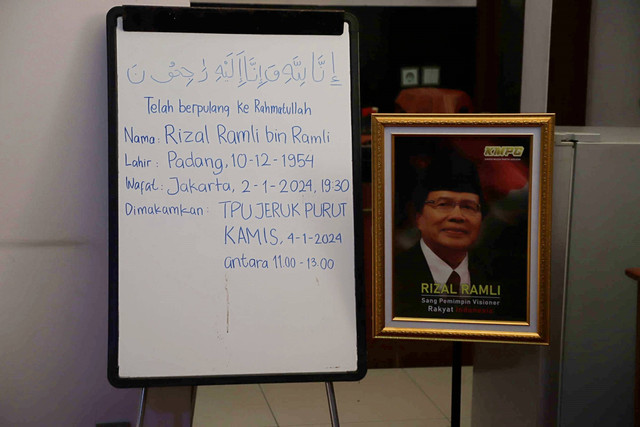 إِنَّا لِلّٰهِ وَإِنَّا إِلَيْهِ رَاجِعُوْنَ
Telah berpulang ke Rahmatullah
Nama: Rizal Ramli bin Ramli
Lahir: Padang, 10-12-1954
Wafat: Jakarta, 2-1-2024, 19:30
Dimakamkan: TPU JERUK PURUT
KAMIS, 4-1-2024
antara 11.00 - 13.00
KMPG
RIZAL RAMLI
Sang Pemimpin Visioner
Rakyat Indonesia